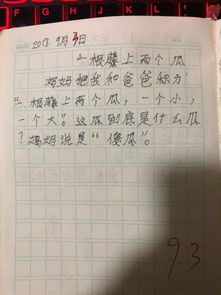 2017 9月3日
一根藤上两个瓜
妈妈把我和爸爸称为
“一根藤上两个瓜,一个小,
一个大”。这瓜到底是什么瓜
?妈妈说是“傻瓜”。
9.3